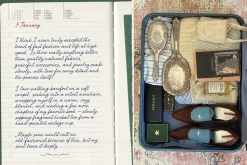 7 January
I think I never truly accepted the
trend of fast fashion and life at high
speed. Is there really anything better
than quality natural fabrics,
graceful accessories, and jewelry made
slowly, with love for every detail and
the process itself?
I love walking barefoot on a soft
carpet, sinking into a velvet armchair,
wrapping myself in a warm, cozy
blanket, and reading a few more
chapters of my favorite book — slowly
sipping fragrant herbal tea from a
hand-painted vintage cup.
Maybe some would call me
old-fashioned because of this, but my
soul loves it deeply.